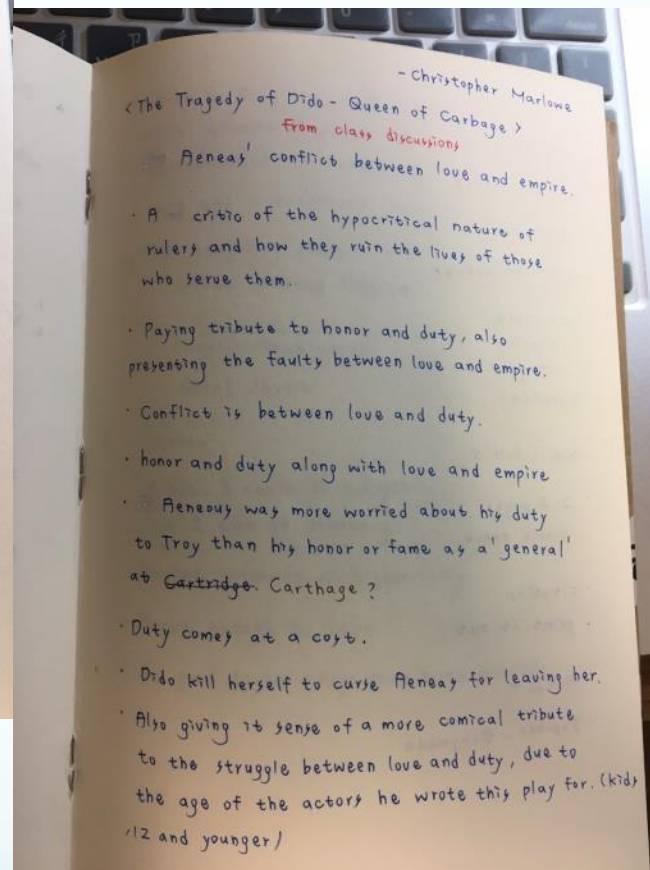 - Christopher Marlowe
<The Tragedy of Dido - Queen of Carbage>
from class discussions
Aeneas' conflict between love and empire.
· A critic of the hypocritical nature of
rulers and how they ruin the lives of those
who serve them.
· Paying tribute to honor and duty, also
presenting the faulty between love and empire.
· Conflict is between love and duty.
· honor and duty along with love and empire
· Aeneous was more worried about his duty
to Troy than his honor or fame as a 'general'
at Cartridge. Carthage ?
· Duty comes at a cost.
· Dido kill herself to curse Aeneas for leaving her.
· Also giving it sense of a more comical tribute
to the struggle between love and duty, due to
the age of the actors he wrote this play for. (kids
,12 and younger)